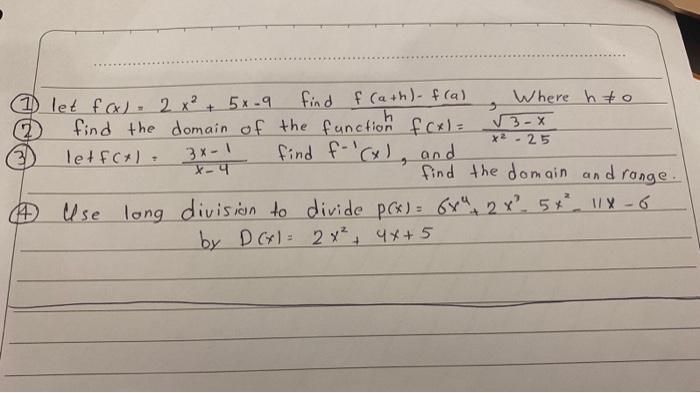 ① let f(x) = 2x² + 5x-9 find f(a+h)-f(a) / h, Where h≠0
② find the domain of the function f(x) = √3-x / x²-25
③ let f(x) = 3x-1 / x-4 find f⁻¹(x), and
find the domain and range.
④ Use long division to divide p(x) = 6x⁴+2x³-5x²-11x-6
by D(x) = 2x²+4x+5